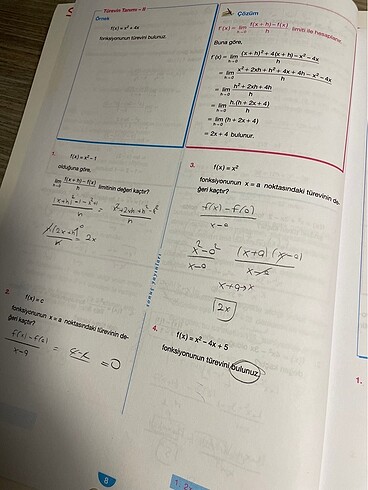 Türevin Tanımı – II
Örnek
f(x) = x² + 4x
fonksiyonunun türevini bulunuz.
Çözüm
f'(x) = lim h→0 f(x+h) – f(x) / h limiti ile hesaplanır.
Buna göre,
f'(x) = lim h→0 (x + h)² + 4(x + h) – x² – 4x / h
= lim h→0 x² + 2xh + h² + 4x + 4h – x² – 4x / h
= lim h→0 h² + 2xh + 4h / h
= lim h→0 h.(h + 2x + 4) / h
= lim h→0 (h + 2x + 4)
= 2x + 4 bulunur.
1.
f(x) = x² – 1
olduğuna göre,
lim h→0 f(x+h) – f(x) / h limitinin değeri kaçtır?
h(2x+h) / h = 2x
2.
f(x) = c
fonksiyonunun x = a noktasındaki türevinin de-
ğeri kaçtır?
f(x) – f(a) / x – a = c – c = 0
3.
f(x) = x²
fonksiyonunun x = a noktasındaki türevinin de-
ğeri kaçtır?
f(x) – f(a)
x – a
x² – a² / x – a (x+a)(x–a) / x – a
x + a → x
2x
4.
f(x) = x² – 4x + 5
fonksiyonunun türevini bulunuz.
yayınları
8
1.
1.